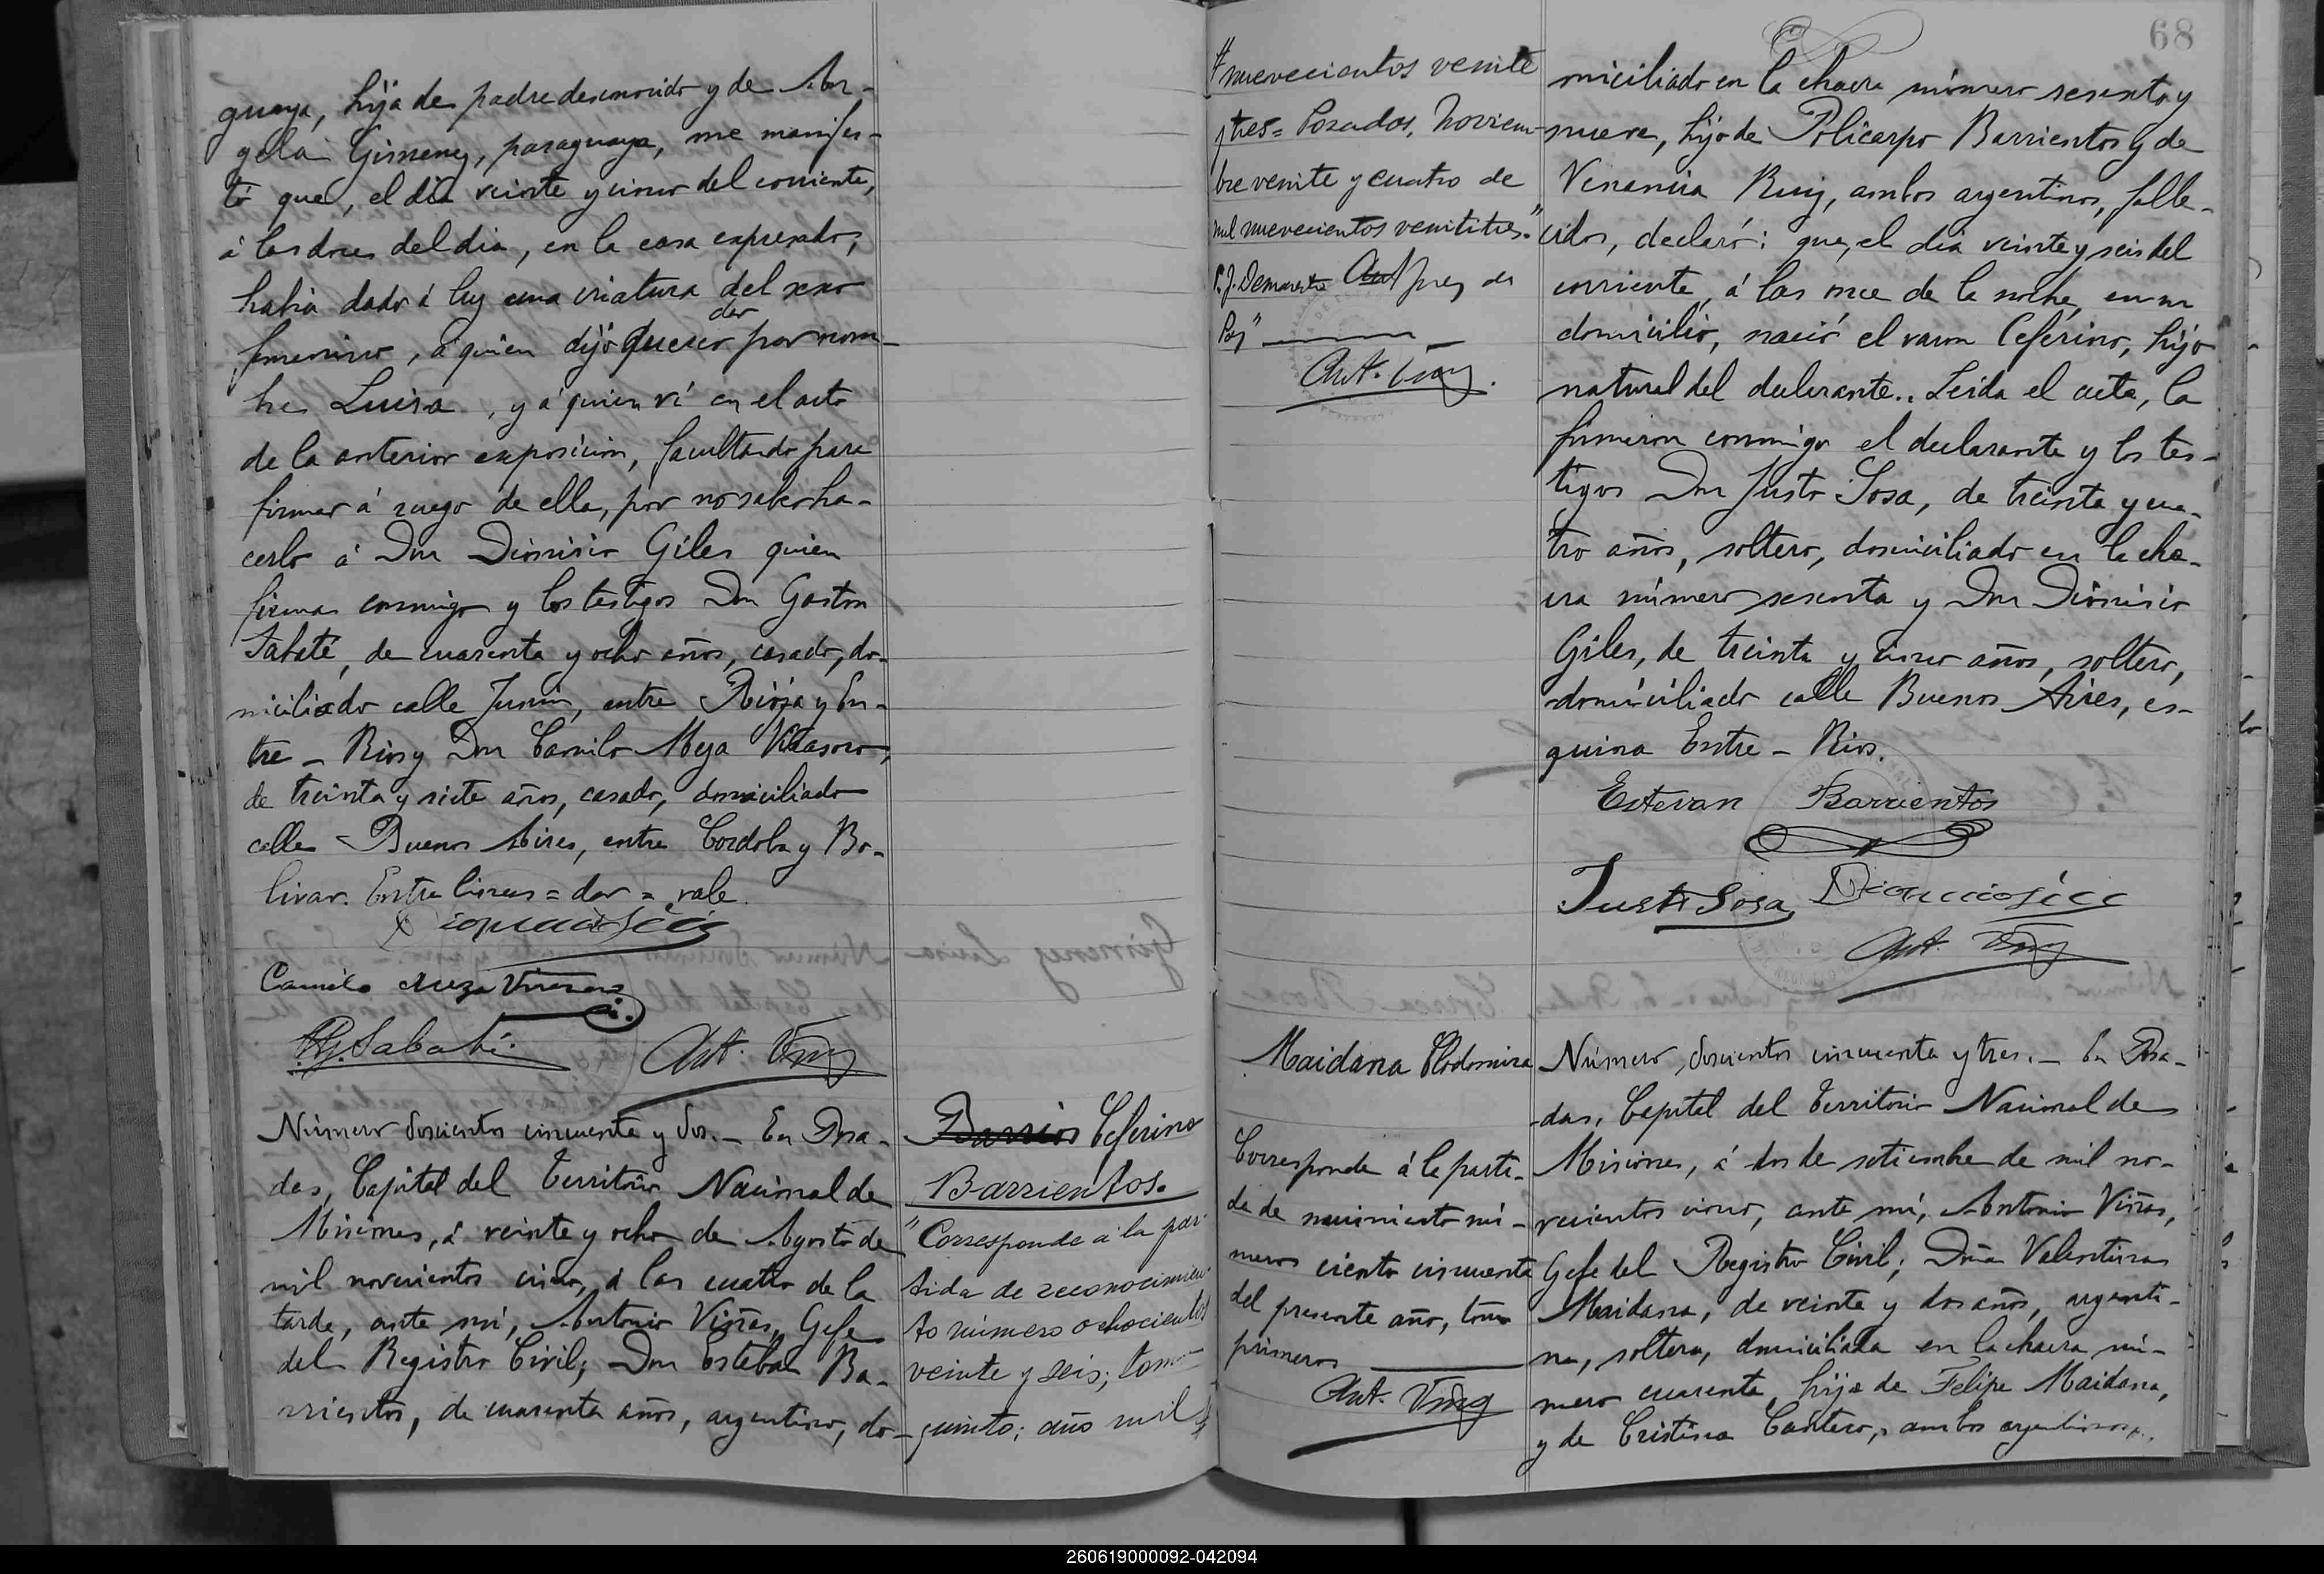 guaya, hija de padre desconocido y de An-
gela Gimenez, paraguaya, me manifes-
tó que, el día veinte y cinco del corriente,
á las doce del dia, en la casa expresada,
habia dado á luz una criatura del sexo
femenino, á quien dijo querer dar por nom-
bre Luisa, y á quien ví en el acto
de la anterior exposicion, facultando para
firmar á ruego de ella, por no saber ha-
cerlo á Don Dionisio Giles quien
firma conmigo y los testigos Don Gaston
Sabaté, de cuarenta y ocho años, casado, do-
miciliado calle Junin, entre Rioja y En-
tre-Rios y Don Camilo Meza
de treinta y siete años, casado, domiciliado
calle Buenos Aires, entre Cordoba y Bo-
livar. Entre lineas = dar = vale.
Camilo Meza
G. Sabaté
Ant. Viñas
Número doscientos cincuenta y dos.- En Posa-
das, Capital del Territorio Nacional de
Misiones, á veinte y ocho de Agosto de
mil novecientos cinco, á las cuatro de la
tarde, ante mí, Antonio Viñas, Gefe
del Registro Civil; Don Esteban Ba-
rrientos, de cuarenta años, argentino, do-
Barrios Ceferino
Barrientos.
"Corresponde á la par-
tida de reconocimien-
to número ochocientos
veinte y seis; tomo
quinto; año mil
nuevecientos veinte
y tres = Posadas, Noviem-
bre veinte y cuatro de
mil nuevecientos veintitres."
Juez de
Paz"
Ant. Viñas
68
miciliado en la chacra número sesenta y
nueve, hijo de Policarpo Barrientos y de
Venancia Ruiz, ambos argentinos, falle-
cidos, declaró: que, el día veinte y seis del
corriente, á las once de la noche, en su
domicilio, nació el varon Ceferino, hijo
natural del declarante.. Leida el acta, la
firmaron conmigo el declarante y los tes-
tigos Don Justo Sosa, de treinta y cua-
tro años, soltero, domiciliado en la cha-
cra número sesenta y Don Dionisio
Giles, de treinta y cinco años, soltero,
domiciliado calle Buenos Aires, es-
quina Entre-Rios.
Estevan Barrientos
Justo Sosa
Ant. Viñas
Maidana Clodomira
Corresponde á la parti-
da de nacimiento nú-
mero ciento cincuenta
del presente año, tomo
primero
Ant. Viñas
Número doscientos cincuenta y tres.- En Posa-
das, Capital del Territorio Nacional de
Misiones, á dos de setiembre de mil no-
vecientos cinco, ante mí, Antonio Viñas,
Gefe del Registro Civil; Doña Valentina
Maidana, de veinte y dos años, argenti-
na, soltera, domiciliada en la chacra nú-
mero cuarenta, hija de Felipe Maidana,
y de Cristina Cantero, ambos argentinos,
260619000092-042094